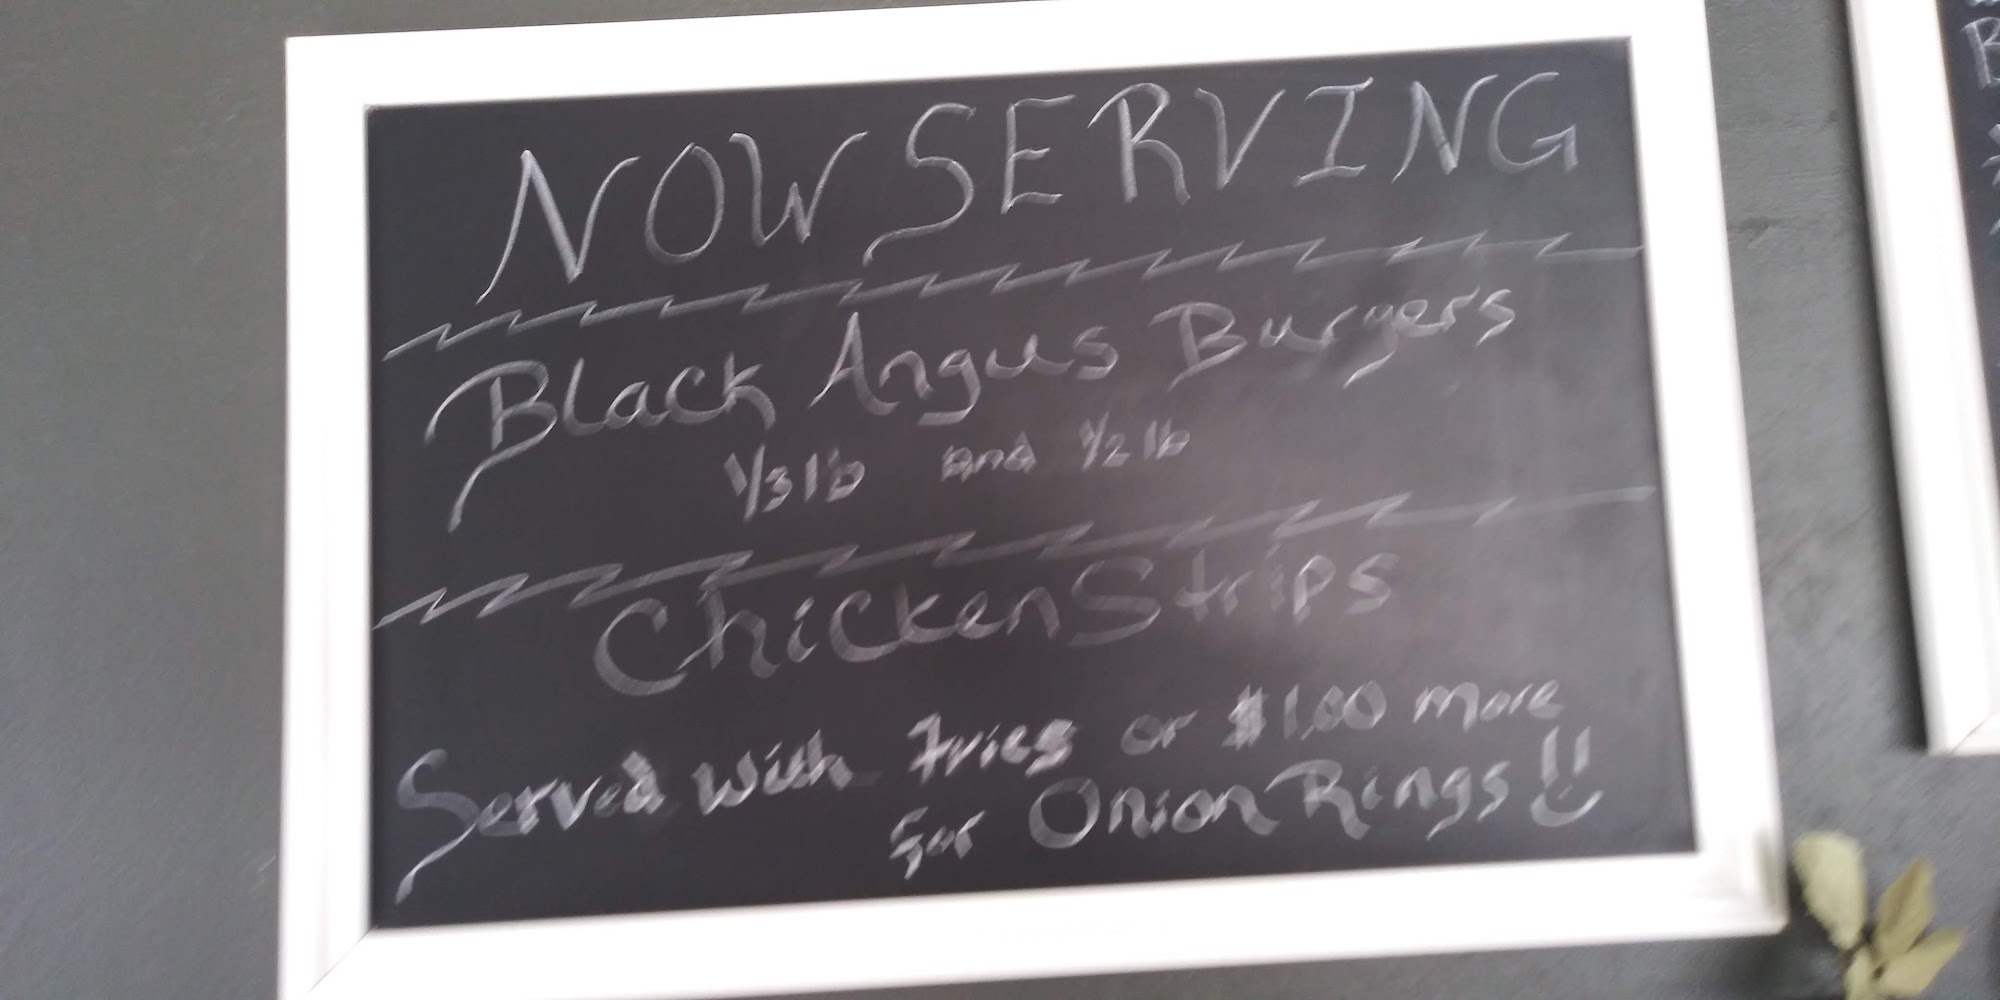 NOW SERVING
Black Angus Burgers
1/3 lb and 1/2 lb
Chicken Strips
Served with fries or $1.00 more
for Onion Rings !!
B